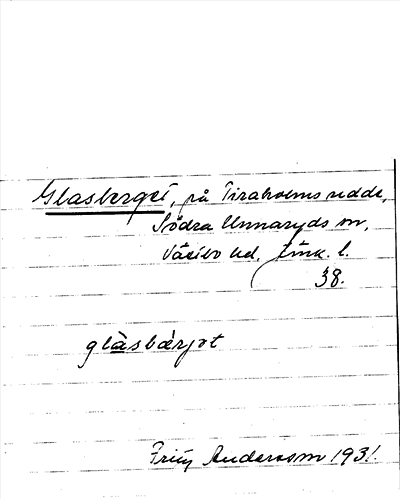 Glasberget, på Tiraholms udde,
Södra Unnaryds sn,
Västbo hd, Jönk. l.
38.
glàsbærjət
Fritz Andersson 1931.